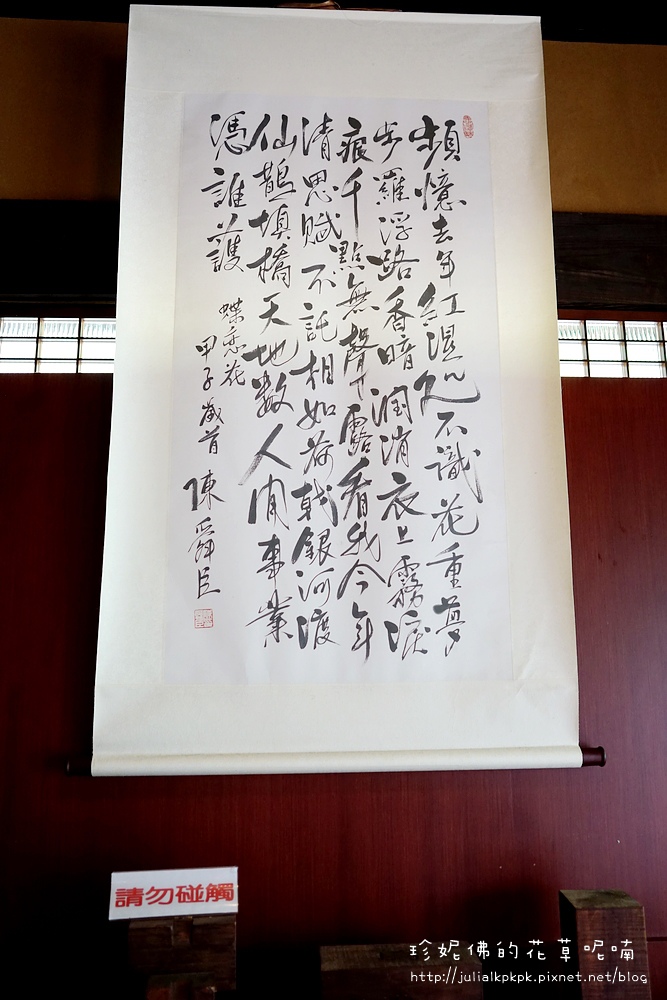 頻憶去年紅濕處不識花重夢
步羅浮路香暗潤消衣上霧淚
痕千點無聲下露看我今年
清思賦不託相如荷戟銀河渡
仙鵲填橋天地數人間事業
憑誰護
蝶恋花
甲子歲首 陳舜臣
請勿碰觸
珍妮佛的花草呢喃
http://julialkpkpk.pixnet.net/blog